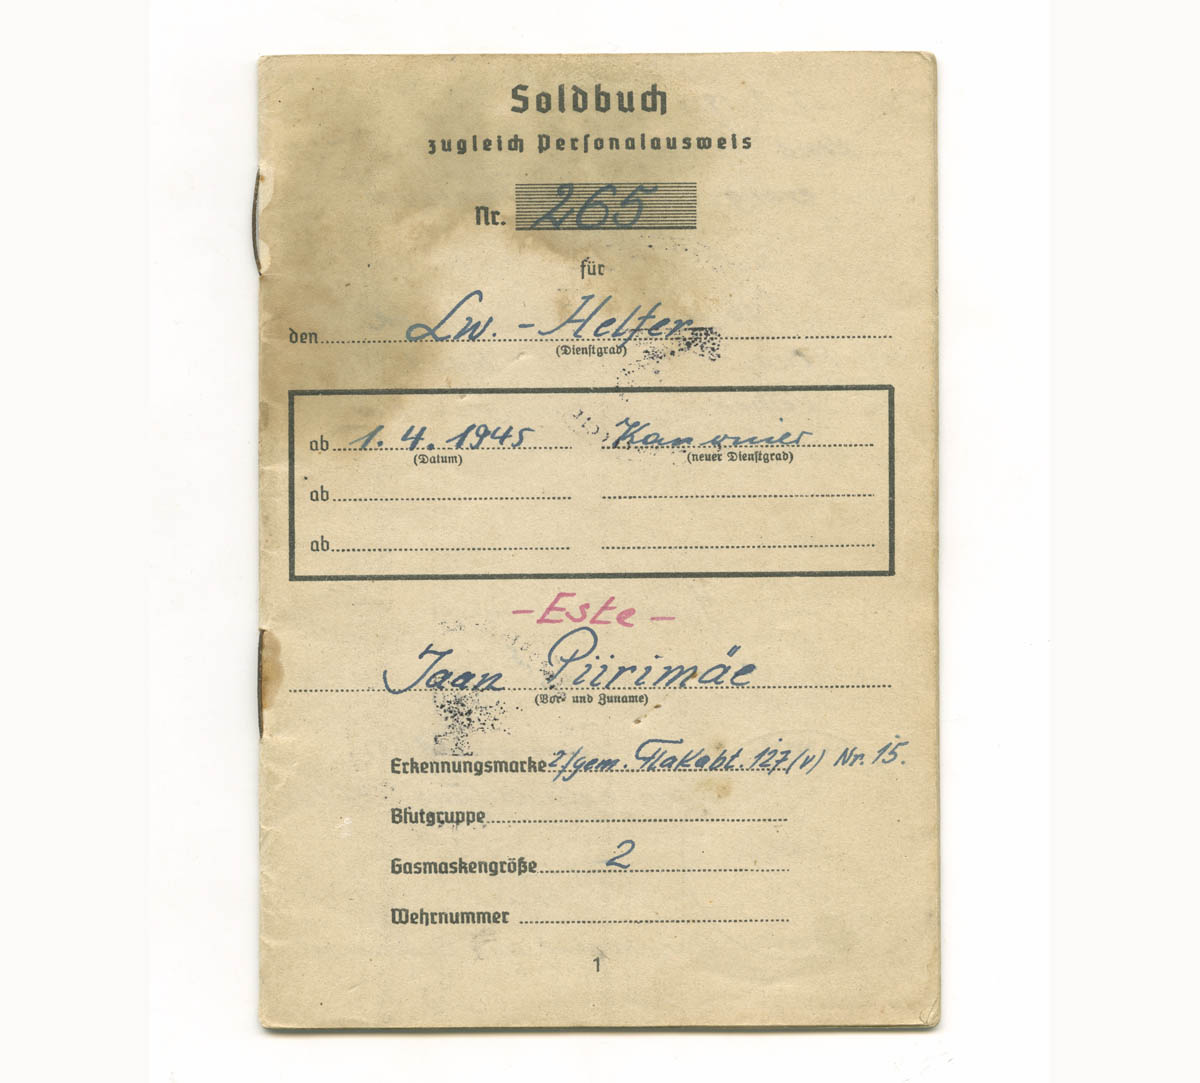 Soldbuch
zugleich Personalausweis
Nr. 265
für
den Lw. - Helfer
(Dienstgrad)
ab 1. 4. 1945 Kanonier
(Datum) (neuer Dienstgrad)
ab
ab
- Este -
Jaan Piirimäe
(Vor- und Zuname)
Erkennungsmarke 2/gem. Flakabt. 127(v) Nr. 15.
Blutgruppe
Gasmaskengröße 2
Wehrnummer
1